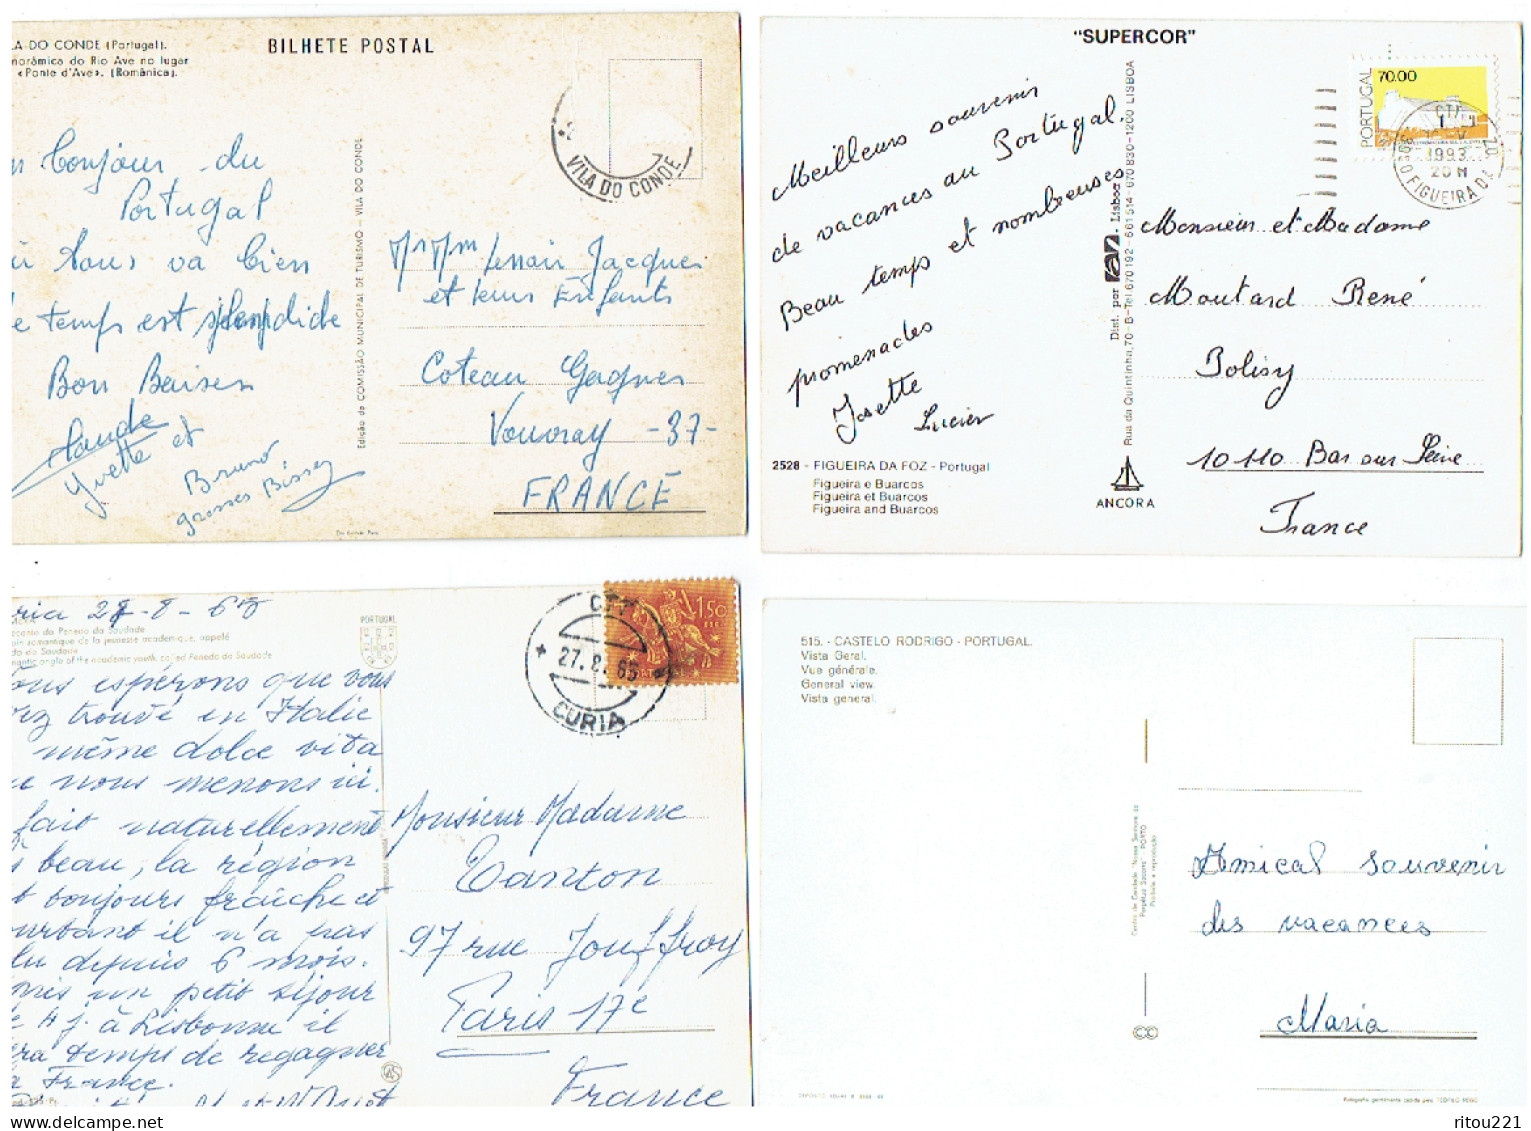 LA DO CONDE (Portugal).
norâmica do Rio Ave no lugar
«Ponte d'Ave». (Românica).
BILHETE POSTAL
VILA DO CONDE
n bonjour du
Portugal
tous va bien
e temps est splendide
Bon Baisers
Claude
Yvette et
Bruno
grosses Bises
Edição da COMISSÃO MUNICIPAL DE TURISMO - VILA DO CONDE
Mr Mm Lenoir Jacques
et leurs Enfants
Coteau Gagnes
Vouvray -37-
FRANCE
"SUPERCOR"
Meilleurs souvenir
de vacances au Portugal.
Beau temps et nombreuses
promenades
Josette
Lucien
2528 - FIGUEIRA DA FOZ - Portugal
Figueira e Buarcos
Figueira et Buarcos
Figueira and Buarcos
Dist. por Lisboa
Rua da Quintinha, 70-B-Tel 670192-661514-670830-1200 LISBOA
ANCORA
PORTUGAL
70.00
CTT
1993
20 H
FIGUEIRA DA
Monsieur et Madame
Moutard René
Polisy
10110 Bar sur Seine
France
ria 27-8-65
recanto do Penedo da Saudade
oin romantique de la jeunesse academique, appelé
do da Saudade
mantic angle of the academic youth, called Penedo da Saudade
PORTUGAL
CTT
27. 8. 65
CURIA
1$50
ous espérons que vous
rez trouvé en Italie
même dolce vita
ue nous menons ici.
fait naturellement
s beau, la région
t toujours fraîche et
ourtant il n'a pas
lu depuis 6 mois.
près un petit séjour
de 4 j. à Lisbonne il
ra temps de regagner
a France.
Monsieur Madame
Tanton
97 rue Jouffroy
Paris 17e
France
515. - CASTELO RODRIGO - PORTUGAL.
Vista Geral.
Vue générale.
General view.
Vista general.
Centro de Caridade "Nossa Senhora do
Perpétuo Socorro" - PORTO
Proibida a reprodução
Amical souvenir
des vacances
Maria
ritou221